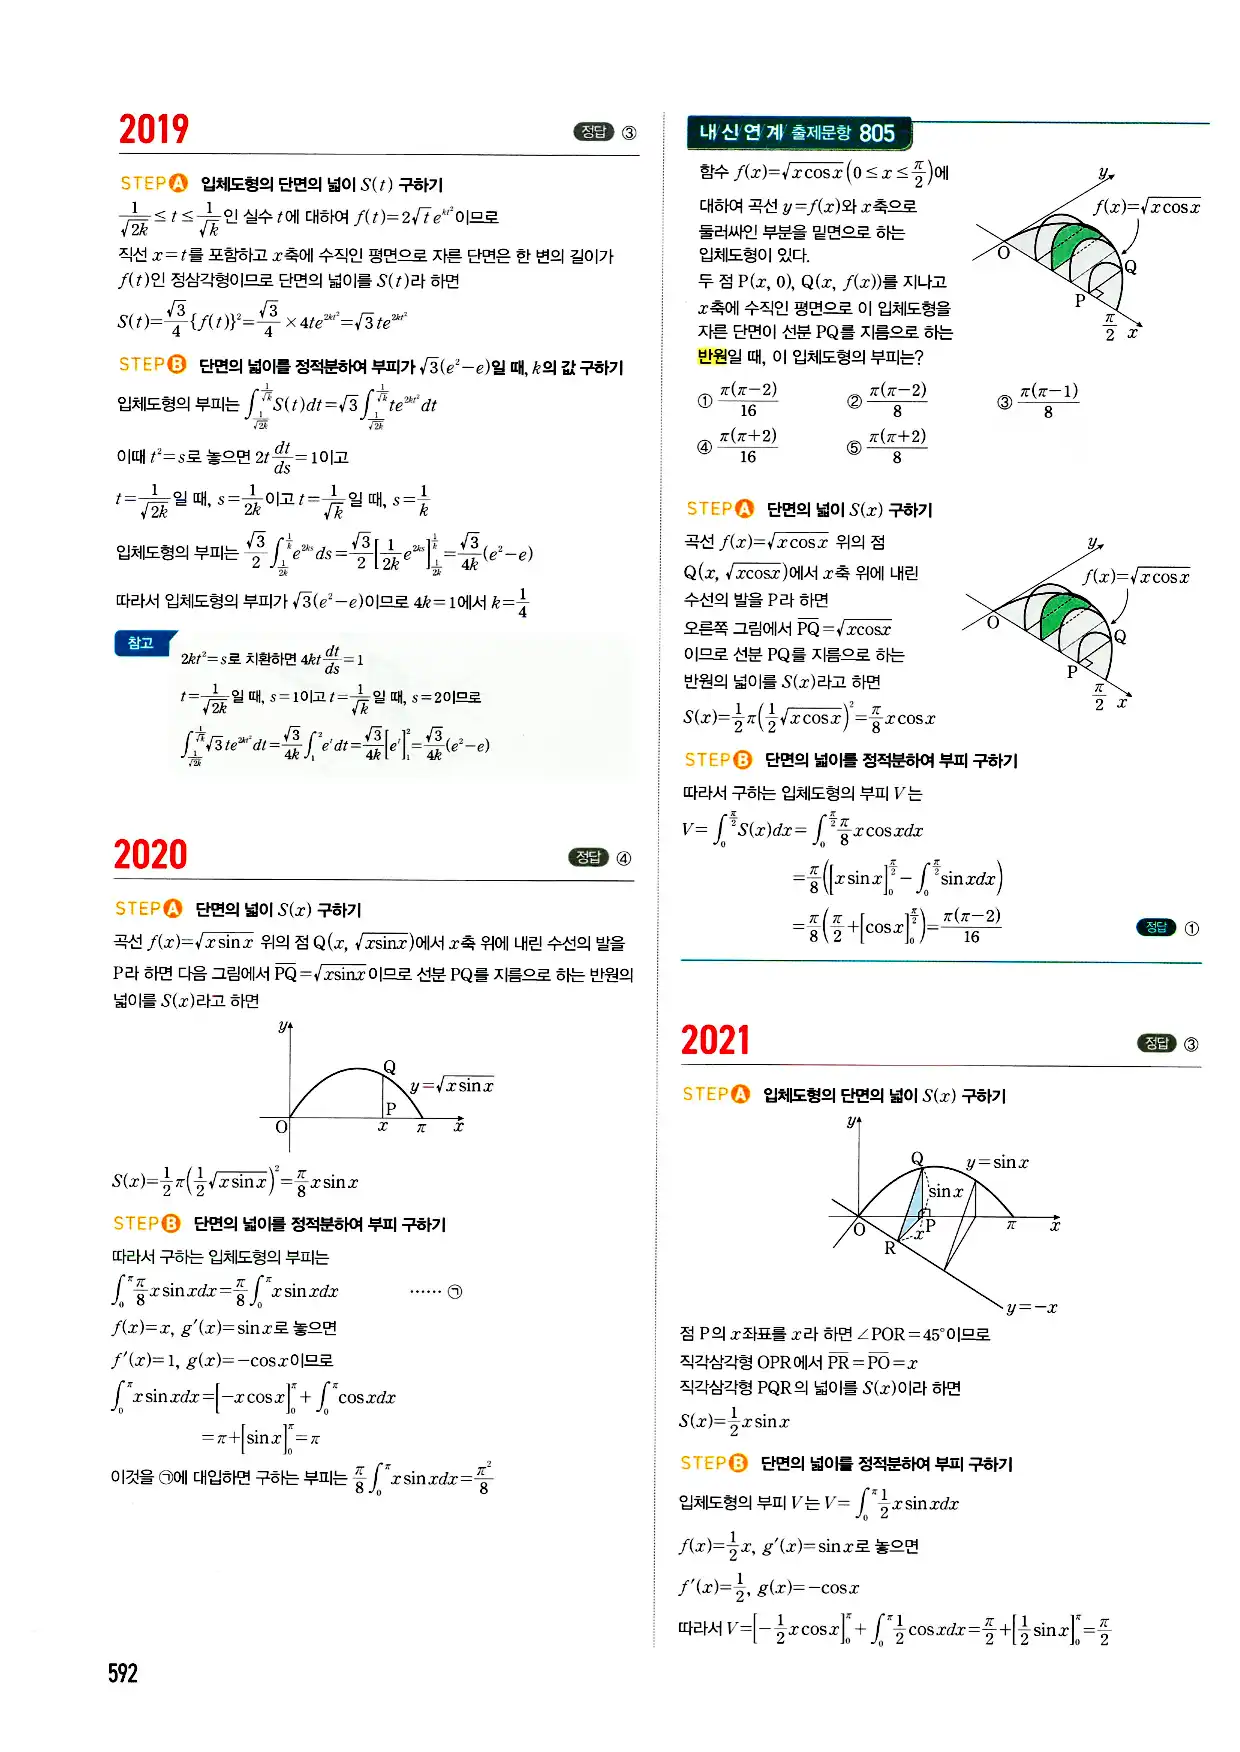 2019
정답 ③
STEP A 입체도형의 단면의 넓이 S(t) 구하기
1/√(2k) ≤ t ≤ 1/√k 인 실수 t에 대하여 f(t)=2√t e^(kt²)이므로
직선 x=t를 포함하고 x축에 수직인 평면으로 자른 단면은 한 변의 길이가
f(t)인 정삼각형이므로 단면의 넓이를 S(t)라 하면
S(t)=√3/4 {f(t)}²=√3/4 ×4te^(2kt²)=√3 te^(2kt²)
STEP B 단면의 넓이를 정적분하여 부피가 √3(e²−e)일 때, k의 값 구하기
입체도형의 부피는 ∫_{1/√(2k)}^{1/√k} S(t)dt=√3∫_{1/√(2k)}^{1/√k} te^(2kt²)dt
이때 t²=s로 놓으면 2t dt/ds=1이고
t=1/√(2k)일 때, s=1/2k이고 t=1/√k일 때, s=1/k
입체도형의 부피는 √3/2 ∫_{1/2k}^{1/k} e^(2ks) ds=√3/2 [1/2k e^(2ks)]_{1/2k}^{1/k}=√3/4k (e²−e)
따라서 입체도형의 부피가 √3(e²−e)이므로 4k=1에서 k=1/4
참고
2kt²=s로 치환하면 4kt dt/ds=1
t=1/√(2k)일 때, s=1이고 t=1/√k일 때, s=2이므로
∫_{1/√(2k)}^{1/√k} √3 te^(2kt²)dt=√3/4k ∫_1^2 e^t dt=√3/4k [e^t]_1^2=√3/4k (e²−e)
2020
정답 ④
STEP A 단면의 넓이 S(x) 구하기
곡선 f(x)=√(x sin x) 위의 점 Q(x, √(xsinx))에서 x축 위에 내린 수선의 발을
P라 하면 다음 그림에서 PQ=√(xsinx)이므로 선분 PQ를 지름으로 하는 반원의
넓이를 S(x)라고 하면
y
Q
y=√(x sin x)
P
O x π x
S(x)=1/2 π(1/2 √(x sin x))²=π/8 x sin x
STEP B 단면의 넓이를 정적분하여 부피 구하기
따라서 구하는 입체도형의 부피는
∫_0^π π/8 x sin xdx=π/8 ∫_0^π x sin xdx ⋯⋯ ㉠
f(x)=x, g′(x)=sin x로 놓으면
f′(x)=1, g(x)=−cos x이므로
∫_0^π x sin xdx=[−x cos x]_0^π+∫_0^π cos xdx
=π+[sin x]_0^π=π
이것을 ㉠에 대입하면 구하는 부피는 π/8 ∫_0^π x sin xdx=π²/8
592
내신연계 출제문항 805
함수 f(x)=√(x cos x) (0≤x≤π/2)에
대하여 곡선 y=f(x)와 x축으로
둘러싸인 부분을 밑면으로 하는
입체도형이 있다.
두 점 P(x, 0), Q(x, f(x))를 지나고
x축에 수직인 평면으로 이 입체도형을
자른 단면이 선분 PQ를 지름으로 하는
반원일 때, 이 입체도형의 부피는?
y
f(x)=√(x cos x)
O
Q
P
π/2 x
① π(π−2)/16 ② π(π−2)/8 ③ π(π−1)/8
④ π(π+2)/16 ⑤ π(π+2)/8
STEP A 단면의 넓이 S(x) 구하기
곡선 f(x)=√(x cos x) 위의 점
Q(x, √(xcosx))에서 x축 위에 내린
수선의 발을 P라 하면
오른쪽 그림에서 PQ=√(xcosx)
이므로 선분 PQ를 지름으로 하는
반원의 넓이를 S(x)라고 하면
S(x)=1/2 π(1/2 √(x cos x))²=π/8 x cos x
y
f(x)=√(x cos x)
O
Q
P
π/2 x
STEP B 단면의 넓이를 정적분하여 부피 구하기
따라서 구하는 입체도형의 부피 V는
V=∫_0^{π/2} S(x)dx=∫_0^{π/2} π/8 x cos xdx
=π/8 ([x sin x]_0^{π/2}−∫_0^{π/2} sin xdx)
=π/8 (π/2+[cos x]_0^{π/2})=π(π−2)/16
정답 ①
2021
정답 ③
STEP A 입체도형의 단면의 넓이 S(x) 구하기
y
Q
y=sin x
sin x
O P π x
x
R
y=−x
점 P의 x좌표를 x라 하면 ∠POR=45°이므로
직각삼각형 OPR에서 PR=PO=x
직각삼각형 PQR의 넓이를 S(x)이라 하면
S(x)=1/2 x sin x
STEP B 단면의 넓이를 정적분하여 부피 구하기
입체도형의 부피 V는 V=∫_0^π 1/2 x sin xdx
f(x)=1/2 x, g′(x)=sin x로 놓으면
f′(x)=1/2, g(x)=−cos x
따라서 V=[−1/2 x cos x]_0^π+∫_0^π 1/2 cos xdx=π/2+[1/2 sin x]_0^π=π/2